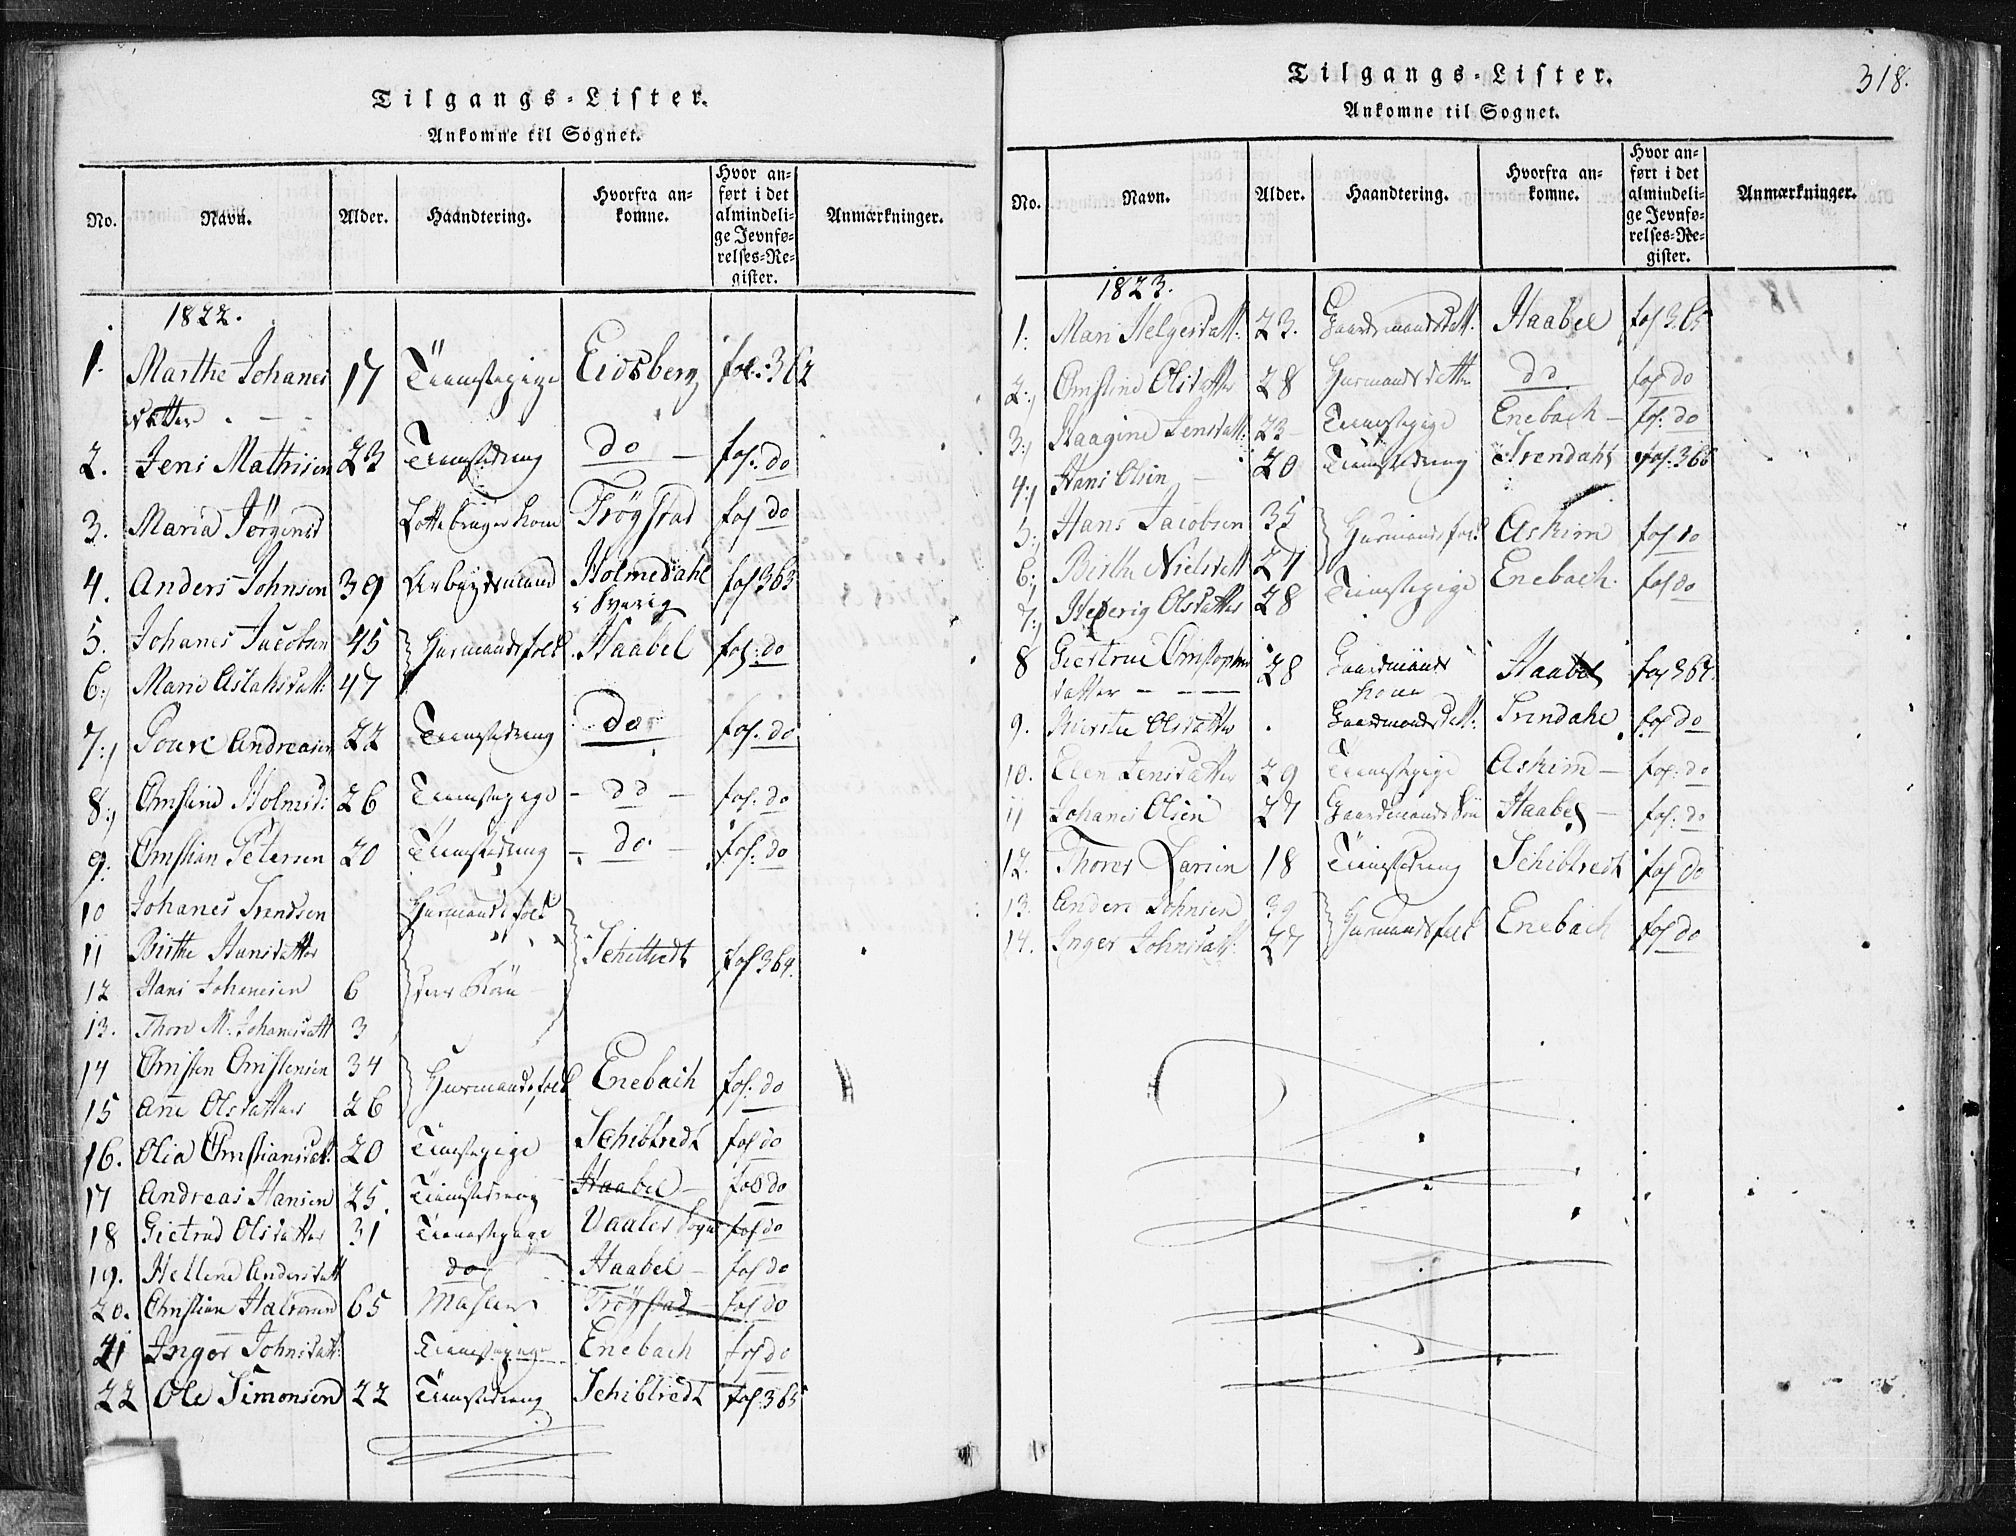 Tilgangs-Lister.
Ankomne til Sognet.
No. Navn. Alder. Haandtering. Hvorfra ankomne. Hvor anført i det almindelige Jevnførelses-Register. Anmærkninger.
1822.
1. Marthe Johanes 17 Tienestepige Eidsberg fol: 362
datter
2. Jens Mathisen 23 Tienestedreng do fol: do
3. Maria Jørgensd Trøgstad fol do
4. Anders Johnsen 39 Holmedahl fol 363
i Sverig
5. Johanes Jacobsen 45 Huusmandsfolk Haabel fol: do
6. Marie Aslaksdatt: 47
7. Povel Andreasen 22 Tienestedreng do fol. do
8. Christine Holmsd: 26 Tienestepige do fol: do
9. Christian Petersen 20 Tienestedreng do fol: do
10 Johanes Svendsen Huusmandsfolk
11 Birthe Hansdatter Schibtvedt fol 364.
12 Hans Johanesen 6 deres Børn
13. Thore M. Johanesdatt 3
14 Christen Christensen 34 Huusmandsfolk Enebach fol: do
15 Ane Olsdatter 26
16. Olia Christiansdat. 20 Tienestepige Schibtvedt fol do
17 Andreas Hansen 25. Tienestedreng Haabel fol do
18 Giertrud Olsdatter 31 Tienestepige Vaaler Sogn fol do
19. Hellene Andersdatt do Haabel fol do
20. Christian Halvorsen 65 Trøgstad fol do
21 Inger Johnsdatt: Tienestepige Enebach fol do
22 Ole Simonsen 22 Tienestedreng Schibtvedt fol. 365
318.
Tilgangs-Lister.
Ankomne til Sognet.
No. Navn. Alder. Haandtering. Hvorfra ankomne. Hvor anført i det almindelige Jevnførelses-Register. Anmærkninger.
1823.
1. Mari Helgesdatt: 23. Gaardmandsdatt. Haabel fol 365
2. Christine Olsdatter 28 Huusmandsdatter do fol do
3. Haagine Jensdatt: 23 Tienestepige Enebach fol. do
4. Hans Olsen 20 Tienestedreng fol. 366
5. Hans Jacobsen 35 Huusmandsfolk Askim fol do
6. Birthe Nielsdatt 27
7. Hedevig Olsdatter 28 Tienestepige Enebach. fol do
8 Giertrue Christophers 28 Gaardmands Haabel fol 367.
datter kone
9. Kirstie Olsdatter Gaardmandsdatt: fol do
10. Elen Jensdatter 29 Tienestepige Askim fol: do
11 Johanes Olsen 27 Gaardmands Søn Haabel fol: do
12. Thorer Larsen 18 Tienestedreng Schibtvedt fol do
13. Anders Johnsen 39 Huusmandsfolk Enebach fol do
14. Inger Johnsdatt: 27